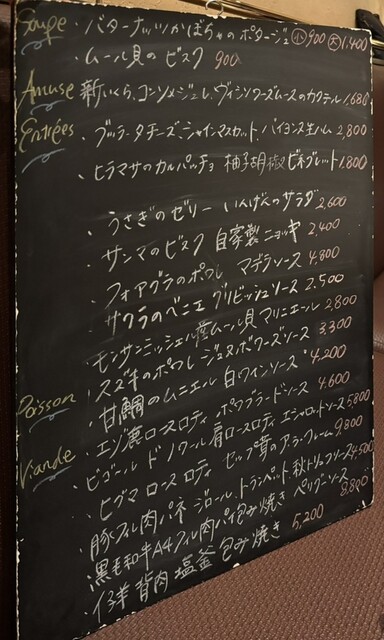 Soupe ・バターナッツかぼちゃのポタージュ 小900 大1,400
・ムール貝のビスク 900
Amuse 新いくら、コンソメジュレ、ヴィシソワーズムースのカクテル 1,680
Entrées ・ブッラータチーズ シャインマスカット バイヨンヌ生ハム 2,800
・ヒラマサのカルパッチョ 柚子胡椒ビネグレット 1,800
・うさぎのゼリー いんげんのサラダ 2,600
・サンマのビスク 自家製ニョッキ 2,400
・フォアグラのポワレ マデラソース 4,800
・サクラのベニエ グリビッシュソース 2,500
・モンサンミッシェル産ムール貝 マリニエール 2,800
Poisson ・スズキのポワレ ジュヌボワーズソース 3,300
・甘鯛のムニエル 白ワインソース 4,200
Viande ・エゾ鹿ロースロティ ポワヴラードソース 4,600
・ビゴール ド ノワール肩ロースロティ エシャロットソース 5,800
・ヒグマ ロース ロティ セップ茸のア・ラ・クレーム 9,800
・豚フィレ肉パネ ジロール、トランペット、秋トリュフソース 4,500
・黒毛和牛A4フィレ肉パイ包み焼き ペリグーソース 8,800
・仔羊背肉 塩釜包み焼き 5,200